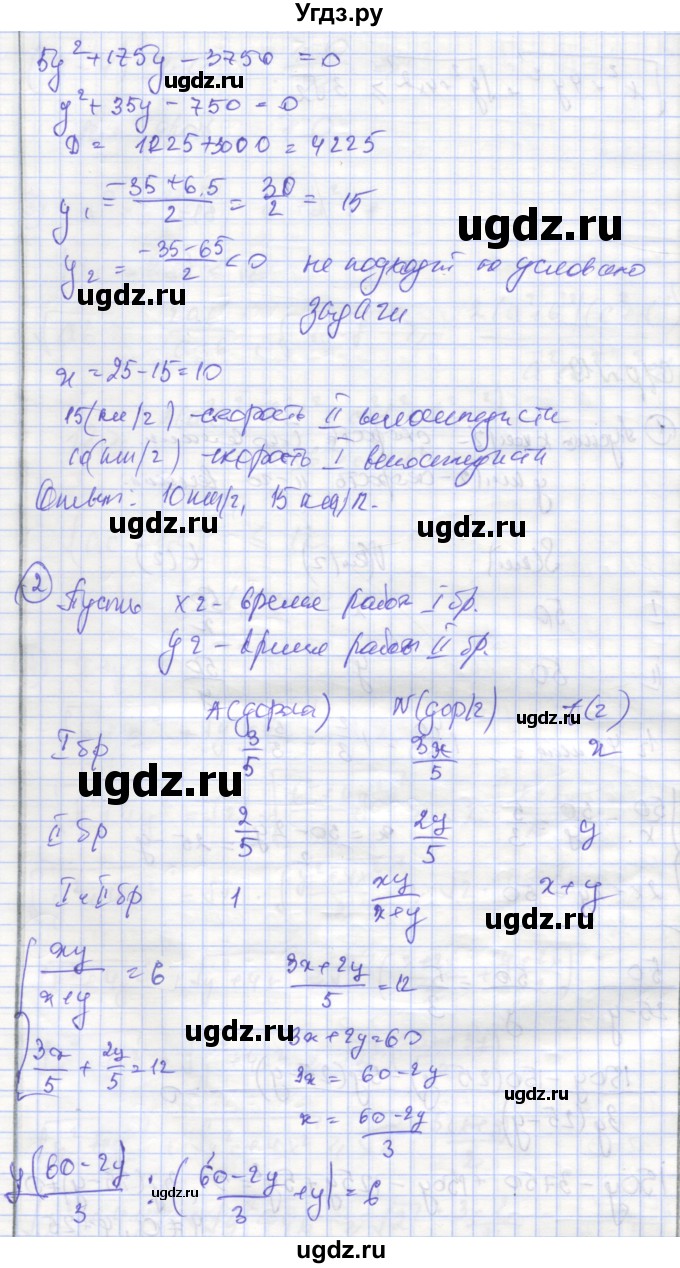 Угдз.ру
5y² + 175y - 3750 = 0
y² + 35y - 750 = 0
D = 1225 + 3000 = 4225
y₁ = (-35 + 65)/2 = 30/2 = 15
y₂ = (-35 - 65)/2 < 0 не подходит по условию
задачи
x = 25 - 15 = 10
15 (км/г) - скорость II велосипедиста
10 (км/г) - скорость I велосипедиста
Ответ: 10 км/г, 15 км/г.
2 Пусть x г - время работ I бр.
y г - время работы II бр.
A(дорога) N(дор/г) t(г)
I бр 3/5 3x/5 x
II бр 2/5 2y/5 y
I и II бр 1 xy/(x+y) x+y
{ xy/(x+y) = 6 (3x+2y)/5 = 12
3x/5 + 2y/5 = 12 3x + 2y = 60
3x = 60 - 2y
x = (60 - 2y)/3
y(60 - 2y)/3 : ((60 - 2y)/3 + y) = 6
ugdz.ru
ugdz.ru
ugdz.ru
ugdz.ru
ugdz.ru
ugdz.ru
ugdz.ru
ugdz.ru
ugdz.ru
ugdz.ru
ugdz.ru
ugdz.ru
ugdz.ru